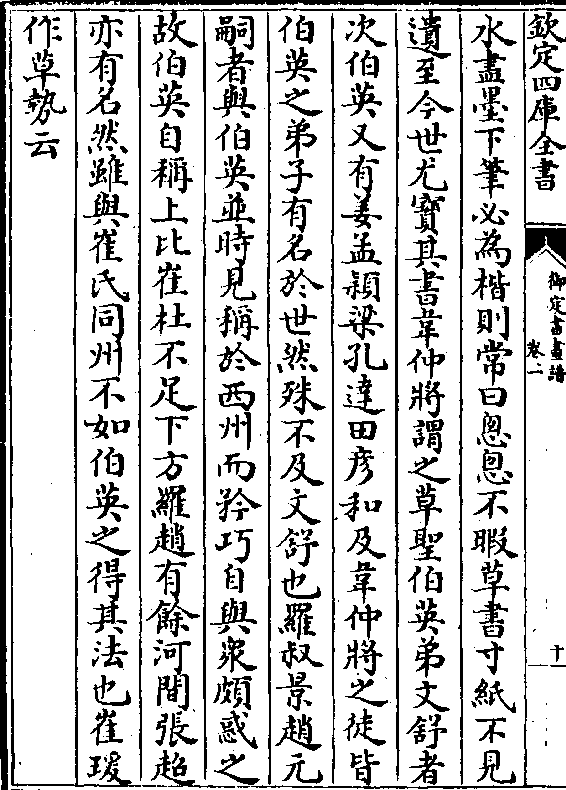 欽定四庫全書
御定書畫譜
卷二
十
水盡墨下筆必為楷則常曰怱怱不暇草書寸紙不見
遺至今世尤寳其書韋仲將謂之草聖伯英弟文舒者
次伯英又有姜孟穎梁孔達田彦和及韋仲將之徒皆
伯英之弟子有名於世然殊不及文舒也羅叔景趙元
嗣者與伯英並時見稱於西州而矜巧自與衆頗惑之
故伯英自稱上比崔杜不足下方羅趙有餘河間張超
亦有名然雖與崔氏同州不如伯英之得其法也崔瑗
作草勢云